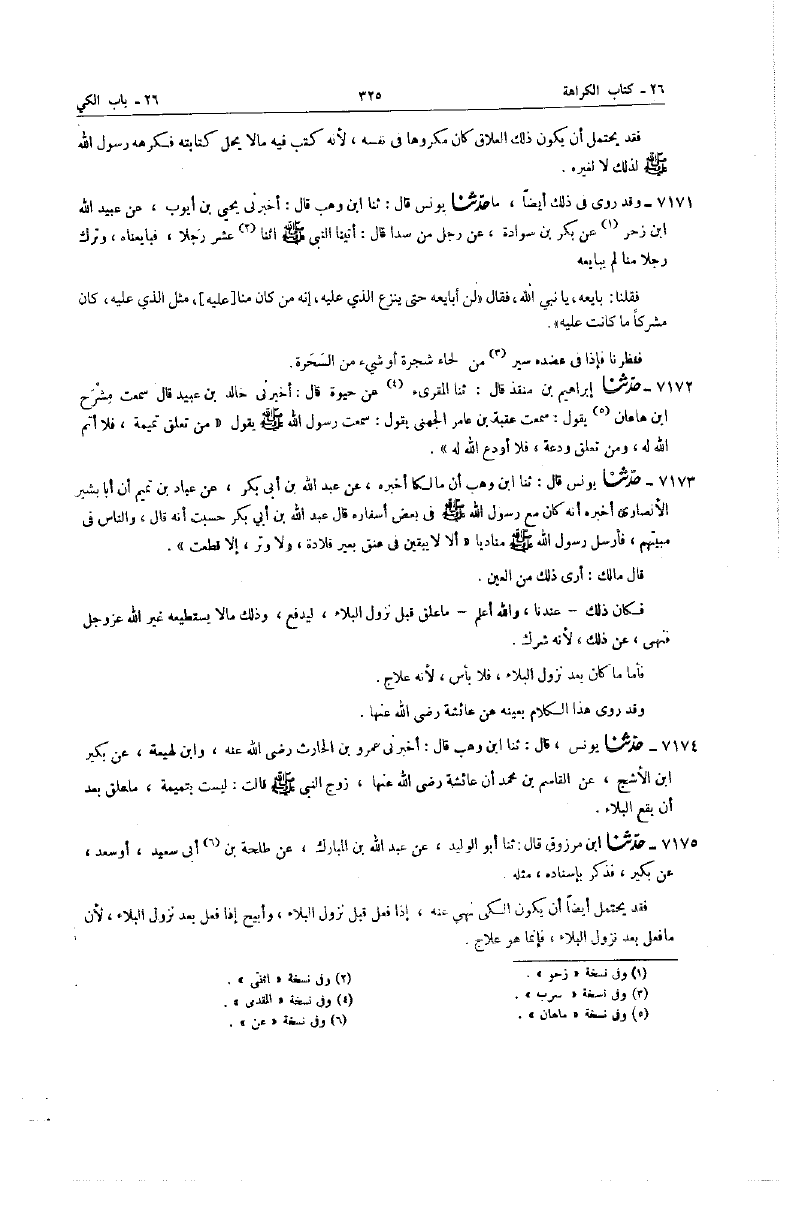 ٢٦ - كتاب الكراهة ٣٢٥ ٢٦ - باب الكي
فقد يحتمل أن يكون ذلك العلاق كان مكروها فى نفسه ، لأنه كتب فيه مالا يحل كتابته فكرهه رسول الله
ﷺ لذلك لا لغيره .
٧١٧١ - وقد روى فى ذلك أيضاً ، ما حدّثنا يونس قال : ثنا ابن وهب قال : أخبرنى يحيى بن أيوب ، عن عبيد الله
ابن زحر (١) عن بكر بن سوادة ، عن رجل من سدا قال : أتينا النبي ﷺ اثنا (٢) عشر رجلا ، فبايعناه ، وترك
رجلا منا لم يبايعه
فقلنا : بايعه، يا نبي الله، فقال «لن أبايعه حتى ينزع الذي عليه، إنه من كان منا [عليه]، مثل الذي عليه، كان
مشركاً ما كانت عليه».
فنظرنا فإذا فى عضده سير (٣) من لحاء شجرة أو شيء من السَحَرة.
٧١٧٢ - حدّثنا إبراهيم بن منقذ قال : ثنا المقرىء (٤) عن حيوة قال : أخبرنى خالد بن عبيد قال سمعت مِشْرَح
ابن هاعان (٥) يقول : سمعت عقبة بن عامر الجهنى يقول : سمعت رسول الله ﷺ يقول « من تعلق تميمة ، فلا أتم
الله له ، ومن تعلق ودعة ، فلا أودع الله له » .
٧١٧٣ - حدّثنا يونس قال : ثنا ابن وهب أن مالكا أخبره ، عن عبد الله بن أبى بكر ، عن عباد بن تميم أن أبا بشير
الأنصارى أخبره أنه كان مع رسول الله ﷺ فى بعض أسفاره قال عبد الله بن أبي بكر حسبت أنه قال ، والناس فى
مبيتهم ، فأرسل رسول الله ﷺ مناديا « ألا لا يبقين فى عنق بعير قلادة ، ولا وتر ، إلا قطعت » .
قال مالك : أرى ذلك من العين .
فكان ذلك - عندنا ، والله أعلم - ماعلق قبل نزول البلاء ، ليدفع ، وذلك مالا يستطيعه غير الله عزوجل
فنهى ، عن ذلك ، لأنه شرك .
فأما ما كان بعد نزول البلاء ، فلا بأس ، لأنه علاج .
وقد روى هذا الكلام بعينه عن عائشة رضى الله عنها .
٧١٧٤ - حدّثنا يونس ، قال : ثنا ابن وهب قال : أخبرنى عمرو بن الحارث رضى الله عنه ، وابن لهيعة ، عن بكير
ابن الأشج ، عن القاسم بن محمد أن عائشة رضى الله عنها ، زوج النبي ﷺ قالت : ليست بتميمة ، ماعلق بعد
أن يقع البلاء .
٧١٧٥ - حدّثنا ابن مرزوق قال : ثنا أبو الوليد ، عن عبد الله بن المبارك ، عن طلحة بن (٦) أبى سعيد ، أوسعد ،
عن بكير ، فذكر بإسناده ، مثله .
فقد يحتمل أيضاً أن يكون الكى نهي عنه ، إذا فعل قبل نزول البلاء ، وأبيح إذا فعل بعد نزول البلاء ، لأن
مافعل بعد نزول البلاء ، فإنما هو علاج .
(١) وفى نسخة « زحو » . (٢) وفى نسخة « اثنى » .
(٣) وفى نسخة « سرب » . (٤) وفى نسخة « المقدى » .
(٥) وفى نسخة « ماهان » . (٦) وفى نسخة « عن » .